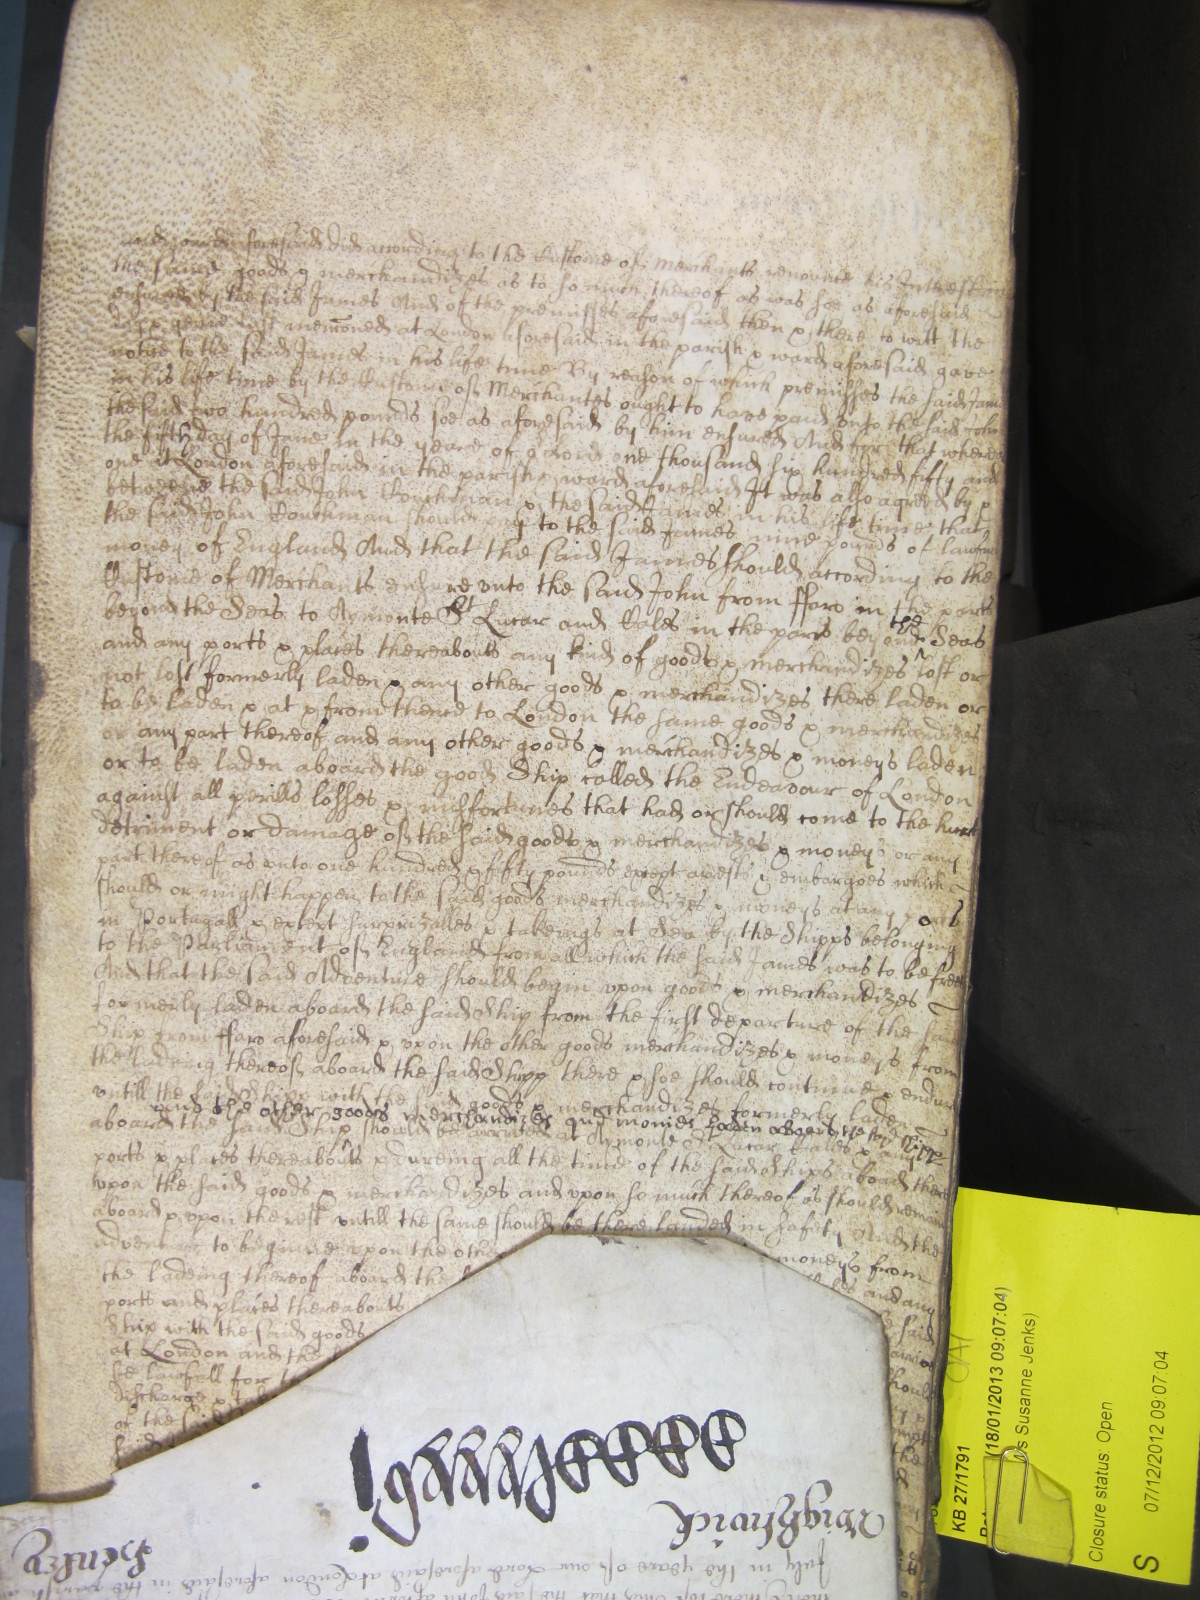 and yeare aforesaid did according to the Custome of Merchants renounce his Interest in
the same goods & merchandizes as to so much thereof as was soe as aforesaid
ensured by the said James And of the premisses aforesaid then & there to witt the
day & yeare last menconed at London aforesaid in the parish & ward aforesaid gave
notice to the said James in his life time By reason of which premisses the said James
in his life time by the Custome of Merchantes ought to have paid unto the said John
the said two hundred pounds soe as aforesaid by him ensured And for that whereas
the fifth day of June in the yeare of o Lord one thousand six hundred fifty and
one at London aforesaid in the parish & ward aforesaid It was also agreed by &
betweene the said John Bouchman & the said James in his life time that
the said John Bouchman should pay to the said James nine pounds of lawfull
money of England And that the said James should according to the
Custome of Merchants ensure unto the said John from ffaro in the parts
beyond the Seas to Aymonte St Lucar and Cales in the parts beyond the Seas
and any ports & places thereabouts any kind of goods & merchandizes lost or
not lost formerly laden & any other goods & merchandizes there laden or
to be laden & at & from thence to London the same goods & merchandizes
or any part thereof and any other goods & merchandizes & moneys laden
or to be laden aboard the good Ship called the Endeavour of London
against all perills losses & misfortunes that had or should come to the hurt
detriment or damage of the said goods & merchandizes & moneys or any
part thereof as unto one hundred & fifty pounds except arrests & embargoes which
should or might happen to the said goods merchandizes & moneys at any ports
in Portugall & except surprizalles & takeings at Sea by the Shipps belonging
to the Parliament of England from all which the said James was to be free
And that the said Adventure should begin upon goods & merchandizes
formerly laden aboard the said Ship from the first departure of the said
Ship from ffaro aforesaid & upon the other goods merchandizes & moneys from
the ladeing thereof aboard the said Shipp there & soe should continue & endure
untill the said Shipp with the said goods & merchandizes formerly laden
and the other goods merchandizes and monies laden aboard the said Shipp
aboard the said Ship should be arrived at Aymonte St Lucar Cales & any
ports & places thereabouts & dureing all the time of the said Ships aboard there
upon the said goods & merchandizes and upon so much thereof as should remain
aboard & upon the rest untill the same should be there landed in safety And the
adventure to beginne upon the other moneys from
the ladeing thereof aboard the Cales and any
ports and places thereabouts said
Ship with the said goods
at London and the should
be lawfull for
discharge &
of the said the
said
Wightwick
ffentry
July in the yeare of our Lord aforesaid at London aforesaid in the parish
KB 27/1791
(18/01/2013 09:07:04)
Ms Susanne Jenks)
Closure status: Open
07/12/2012 09:07:04
S